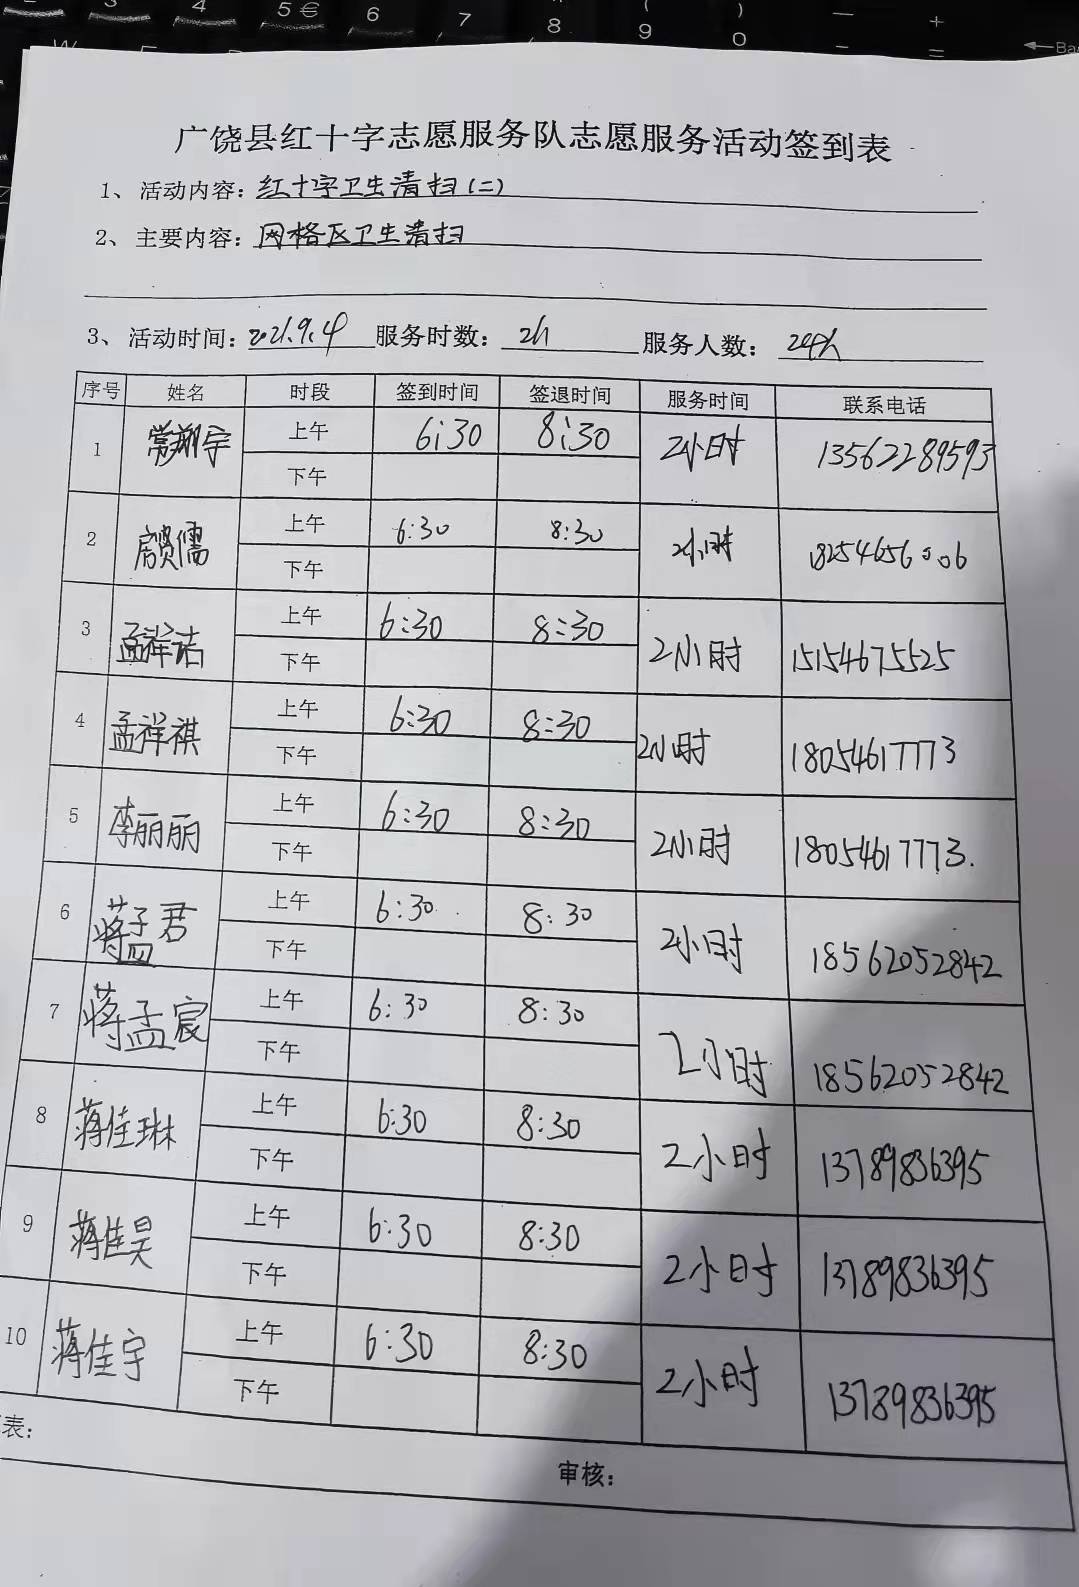 广饶县红十字志愿服务队志愿服务活动签到表
1、活动内容：红十字卫生清扫(二)
2、主要内容：网格区卫生清扫
3、活动时间：2021.9.4 服务时数：2h 服务人数：
序号 姓名 时段 签到时间 签退时间 服务时间 联系电话
1 常翔宇 上午 6:30 8:30 2小时 13562289593
下午
2 上午 6:30 8:30 2小时
下午
3 孟祥诺 上午 6:30 8:30 2小时 15154675525
下午
4 孟祥祺 上午 6:30 8:30 2小时 18054617773
下午
5 李丽丽 上午 6:30 8:30 2小时 18054617773.
下午
6 蒋孟君 上午 6:30 8:30 2小时 18562052842
下午
7 蒋孟宸 上午 6:30 8:30 2小时 18562052842
下午
8 蒋佳琳 上午 6:30 8:30 2小时 13789836395
下午
9 蒋佳昊 上午 6:30 8:30 2小时 13789836395
下午
10 蒋佳宇 上午 6:30 8:30 2小时 13789836395
下午
表：
审核：